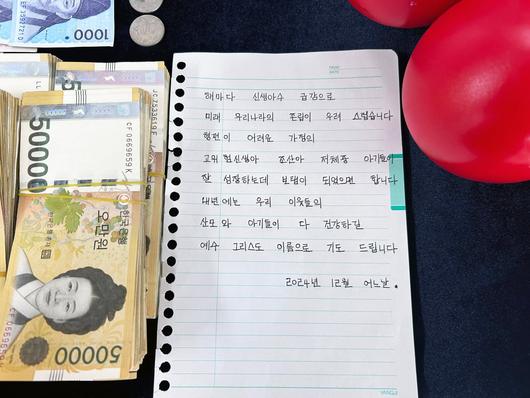 1000
50000
CF 0669659 K
한국은행
오만원
50000
해마다 신생아수 급감으로
미래 우리나라의 존립이 우려 스럽습니다
형편이 어려운 가정의
고위험신생아 조산아 저체중 아기들이
잘 성장하는데 보탬이 되었으면 합니다
내년에는 우리 이웃들의
산모와 아기들이 다 건강하길
예수 그리스도 이름으로 기도 드립니다
2024년 12월 어느날.